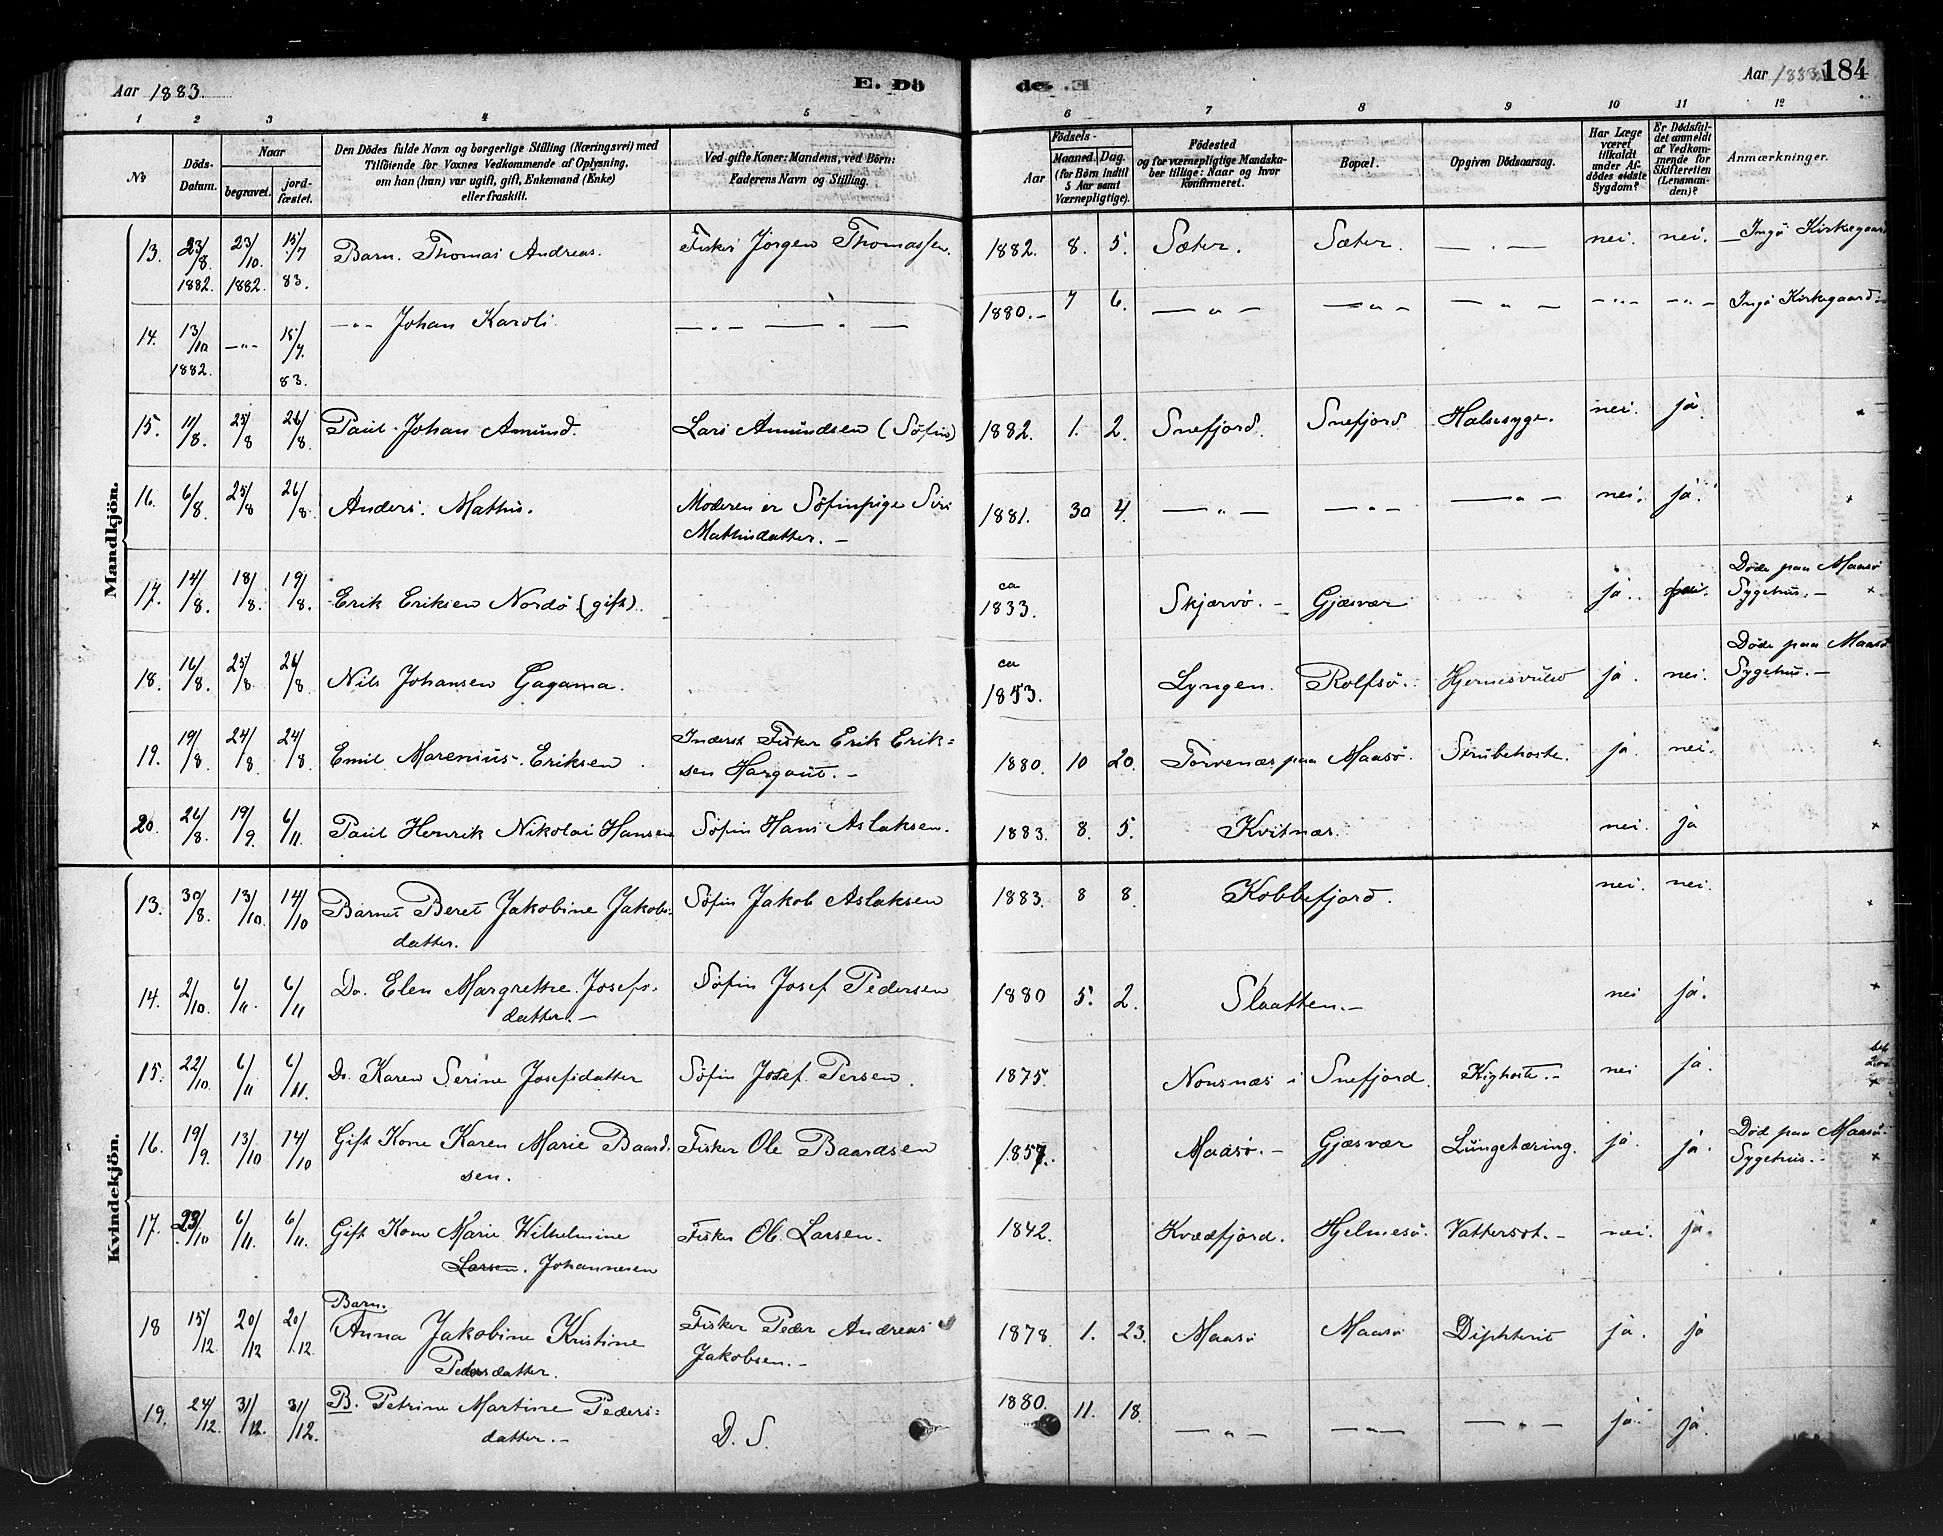 Aar 1883.
E. Dö
de. E
Aar 1883. 184
1 2 3 4 5 6 7 8 9 10 11 12
No
Döds-Datum.
Naar
begravet.
jord-fæstet.
Den Dödes fulde Navn og borgerlige Stilling (Næringsvei) med
Tilföiende for Voxnes Vedkommende af Oplysning,
om han (hun) var ugift, gift, Enkemand (Enke)
eller fraskilt.
Ved gifte Koner: Mandens, ved Börn:
Faderens Navn og Stilling.
Födsels-
Aar
Maaned. Dag.
(for Börn indtil
5 Aar samt
Værnepligtige).
Födested
og for værnepligtige Mandska-
ber tillige: Naar og hvor
konfirmeret.
Bopæl.
Opgiven Dödsaarsag.
Har Læge
været
tilkaldt
under Af-
dödes sidste
Sygdom?
Er Dödsfal-
det anmeldt
af Vedkom-
mende for
Skifteretten
(Lensman-
den)?
Anmærkninger.
Mandkjön.
13. 23/8 1882. 23/10 1882. 15/7 83. Barn. Thomas Andreas. Fisker Jörgen Thomassen. 1882. 8. 5. Sæter. Sæter. — . — nei. nei. — Ingö Kirkegaard
14. 13/10 1882. —"— 15/7. 83. —"— Johan Karoli. —"— — " — 1880.— 7 6. — " — — " — — " — —"— —"— Ingö Kirkegaard.
15. 11/8. 25/8 26/8. Paul Johan Amund. Lars Amundsen (Söfin) 1882. 1. 2. Snefjord. Snefjord Halssyge. nei. ja.
16. 6/8. 25/8 26/8. Anders. Mathis. Moderen er Söfinpige Siri
Mathisdatter. — 1881. 30 4. — " — — " — — " — nei. ja.
17. 14/8. 18/8. 19/8. Erik Eriksen Nordö (gift). ca
1833. Skjærvö. — Gjæsvær ja. Döde paa Maasö
Sygehus. — ×
18. 16/8. 25/8 26/8. Nils Johansen Gagama. ca
1853. Lyngen. Rolfsö. ja. nei. Döde paa Maasö
Sygehus. —
19. 19/8. 24/8 24/8. Emil Marenius Eriksen Inderst Fisker Erik Erik=
sen Hargaut. — 1880. 10 20. Torvenæs paa Maasö. Strubehoste. ja. nei. ×
20. 26/8. 19/9 6/11. Paul Henrik Nikolai Hansen Söfin Hans Aslaksen. 1883. 8. 5. Kvitnæs. nei. ja ×
Kvindekjön.
13. 30/8. 13/10. 14/10 Barnet Beret Jakobine Jakobs-
datter. Söfin Jakob Aslaksen 1883. 8 8. Kobbefjord. nei. nei. ×
14. 2/10. 6/11 6/11 Do. Elen Margrethe Josefs-
datter. — Söfin Josef Pedersen 1880 5. 2. Slaatten. — nei ja. ×
15. 22/10. 6/11 6/11. Do. Karen Serine Josefsdatter Söfin Josef Persen. 1875. Nonsnæs i Snefjord. Kighoste. — nei ja. ×
16. 19/9. 13/10 14/10 Gift Kone Karen Marie Baard-
sen. Fisker Ole Baardsen 1857. Maasö. — Gjæsvær Lungetæring. ja. ja. Död paa Maasö
Sygehus. — ×
17. 23/10 6/11. 6/11. Gift Kone Marie Wilhelmine
Larsen. Johannesen Fisker Ole Larsen. 1842. Kvædfjord. Hjelmesö. Vattersot. — nei. ja. ×
18 15/12 20/12 20/12. Barn.
Anna Jakobine Kristine
Pedersdatter. Fisker Peder Andreas
Jakobsen. — 1878 1. 23. Maasö Maasö Diphterit ja. ja
19. 24/12. 31/12. 31/12. B. Petrine Martine Peders=
datter. — D. S. 1880. 11. 18. — " — — " — — " — ja. ja